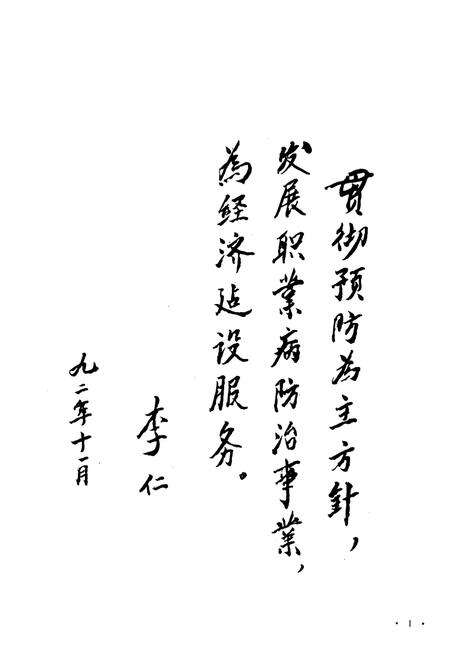 贯彻预防为主方針，
发展职業病防治事業，
為经济建设服务。
李仁
九二年十一月
· 1 ·